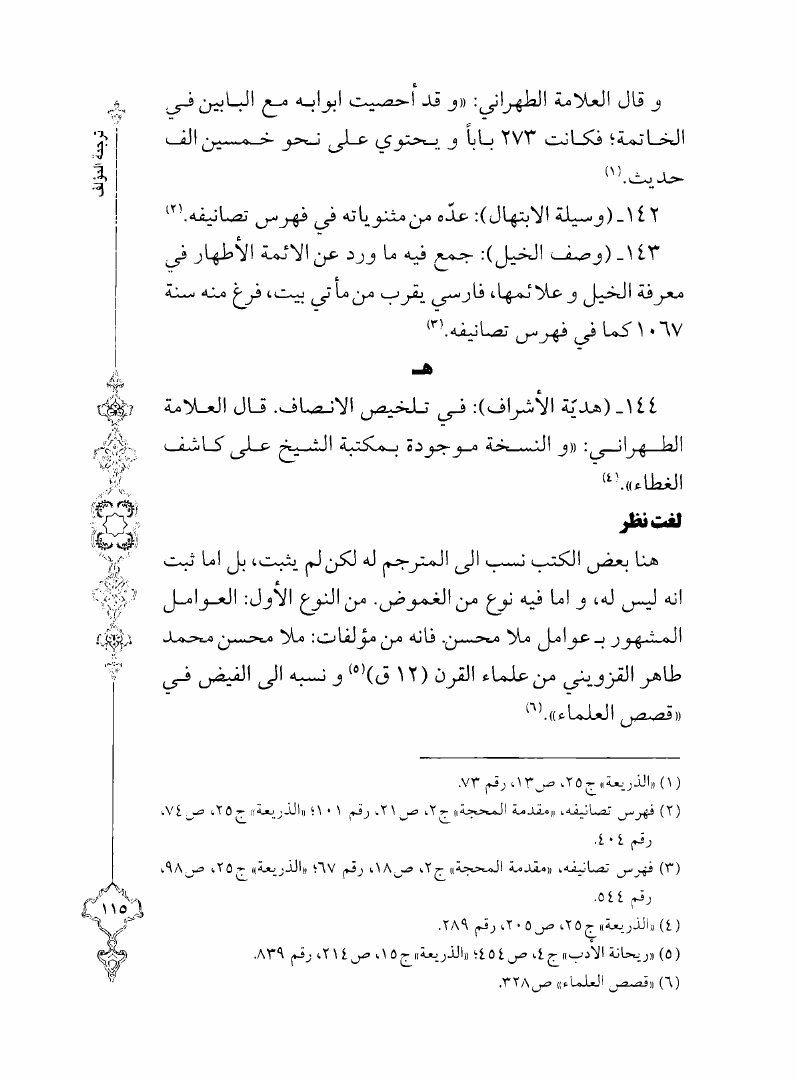 ترجمة المؤلف
و قال العلامة الطهراني: «و قد أحصيت ابوابه مع البابين في
الخاتمة؛ فكانت ٢٧٣ باباً و يحتوي على نحو خمسين الف
حديث.(١)
١٤٢ـ (وسيلة الابتهال): عدّه من مثنوياته في فهرس تصانيفه.(٢)
١٤٣ـ (وصف الخيل): جمع فيه ما ورد عن الائمة الأطهار في
معرفة الخيل و علائمها، فارسي يقرب من مأتي بيت، فرغ منه سنة
١٠٦٧ كما في فهرس تصانيفه.(٣)
هـ
١٤٤ـ (هديّة الأشراف): في تلخيص الانصاف. قال العلامة
الطهراني: «و النسخة موجودة بمكتبة الشيخ على كاشف
الغطاء».(٤)
لفت نظر
هنا بعض الكتب نسب الى المترجم له لكن لم يثبت، بل اما ثبت
انه ليس له، و اما فيه نوع من الغموض. من النوع الأول: العوامل
المشهور بـ عوامل ملا محسن. فانه من مؤلفات: ملا محسن محمد
طاهر القزويني من علماء القرن (١٢ ق)(٥) و نسبه الى الفيض في
«قصص العلماء».(٦)
(١) «الذريعة» ج٢٥، ص١٣، رقم ٧٣.
(٢) فهرس تصانيفه، «مقدمة المحجة» ج٢، ص٢١، رقم ١٠١؛ «الذريعة» ج٢٥، ص٧٤،
رقم ٤٠٤.
(٣) فهرس تصانيفه، «مقدمة المحجة» ج٢، ص١٨، رقم ٦٧؛ «الذريعة» ج٢٥، ص٩٨،
رقم ٥٤٤.
(٤) «الذريعة» ج٢٥، ص٢٠٥، رقم ٢٨٩.
(٥) «ريحانة الأدب» ج٤، ص٤٥٤؛ «الذريعة» ج١٥، ص٢١٤، رقم ٨٣٩.
(٦) «قصص العلماء» ص٣٢٨.
١١٥